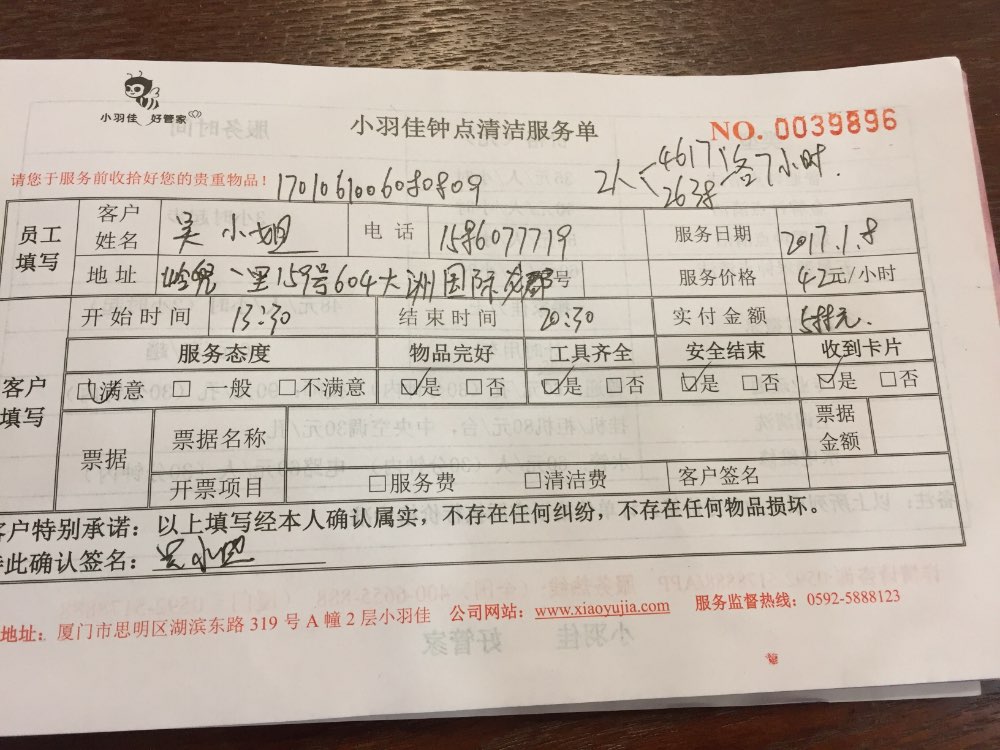 小羽佳 好管家
小羽佳钟点清洁服务单
NO. 0039896
2人 4617 2638 各7小时.
请您于服务前收拾好您的贵重物品！ 1701061006080809
员工填写 客户姓名 吴小姐 电话 1586077719 服务日期 2017.1.8
地址 岭兜一里159号604大洲国际龙郡 号 服务价格 42元/小时
客户填写 开始时间 13:30 结束时间 20:30 实付金额 588元.
服务态度 物品完好 工具齐全 安全结束 收到卡片
☑满意 □一般 □不满意 ☑是 □否 ☑是 □否 ☑是 □否 ☑是 □否
票据 票据名称 票据金额
开票项目 □服务费 □清洁费 客户签名
客户特别承诺：以上填写经本人确认属实，不存在任何纠纷，不存在任何物品损坏。
此确认签名：吴小姐
地址：厦门市思明区湖滨东路 319 号 A 幢 2 层小羽佳 公司网站：www.xiaoyujia.com 服务监督热线：0592-5888123